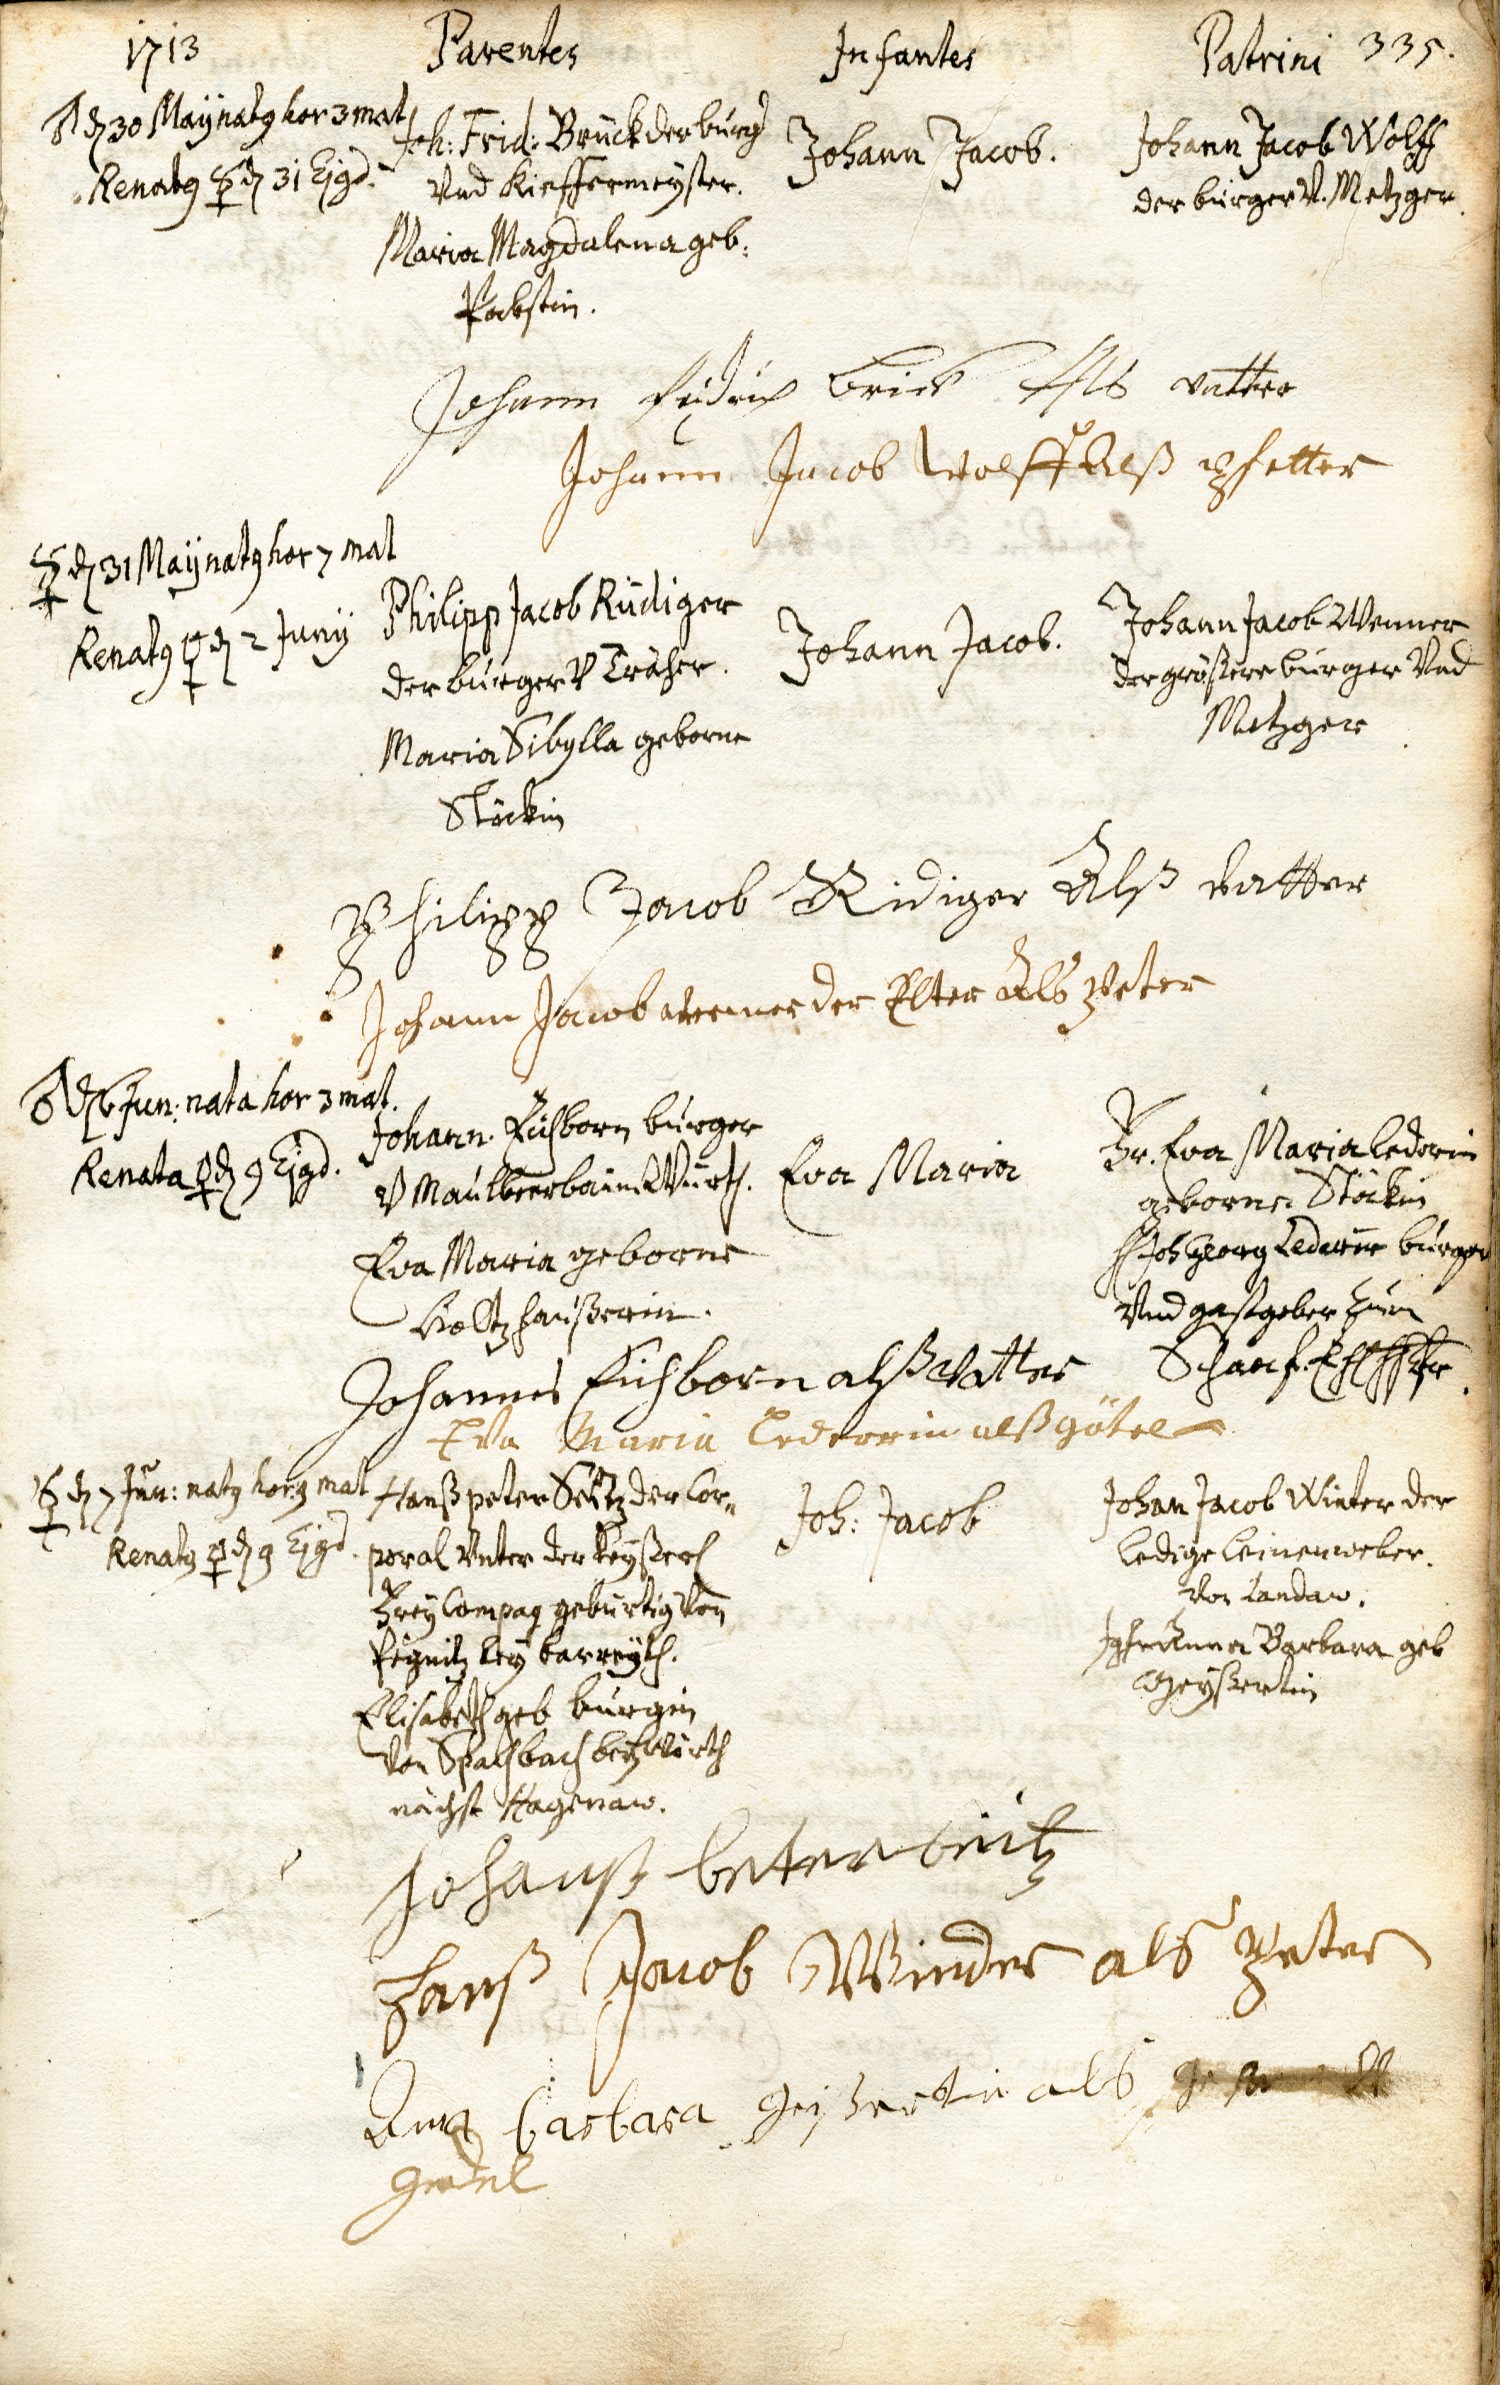 1713 Parentes Infantes Patrini 335.
♂ d 30 Maÿ natg hor 3 mat
Renatg ☿ d 31 Ejgd.
Joh: Frid: Brück der burg
Vnd Kieffermeÿster.
Maria Magdalena geb:
Pabstin.
Johann Jacob.
Johann Jacob Wolff
der bürger V. Metzger
Johann fridrich brick Als vatter
Johann Jacob Wolff Alß pfetter
☿ d 31 Maÿ natg hor 7 mat
Renatg ♀ d 2 Junÿ
Philipp Jacob Rüdiger
der bürger V
Maria Sibylla geborne
Stöckin
Johann Jacob.
Johann Jacob Wenner
der größere bürger Vnd
Metzger
Philipp Jacob Ridiger Alß vatter
Johann Jacob wenner der Elter Als Peter
♂ d 6 Jun: nata hor 3 mat.
Renata ♀ d 9 Ejgd.
Johann Eichborn bürger
V Maülbeerbaüm Würth.
Eva Maria geborne
Holtzhaüßerin.
Eva Maria
Fr. Eva Maria Lederin
geborne Stöckin
H Joh Georg Lederer bürger
Vnd gastgeber Züm
Schaaf
Johannes Eichborn alß Vatter
Eva Maria Lederrin alß götel
☿ d 7 Jün: natg hor 9 mat
Renatg ♀ d 9 Ejgd.
Hanß peter Seitz der Cor=
poral Vnter der Keÿßerl
Freÿ Compag gebürtig Von
Pegnitz beÿ barreÿth.
Elisabeth geb bürgin
Von Spachbach beÿ Wörth
nächst Hagenaw.
Joh: Jacob
Johan Jacob Winter der
Ledige Leinenweber.
Von Landaw.
Jgfr Anna Barbara geb
Geÿßertin
Johanß beter seitz
Hanß Jacob Winder als Peter
Anna barbara geißertin als
gedel